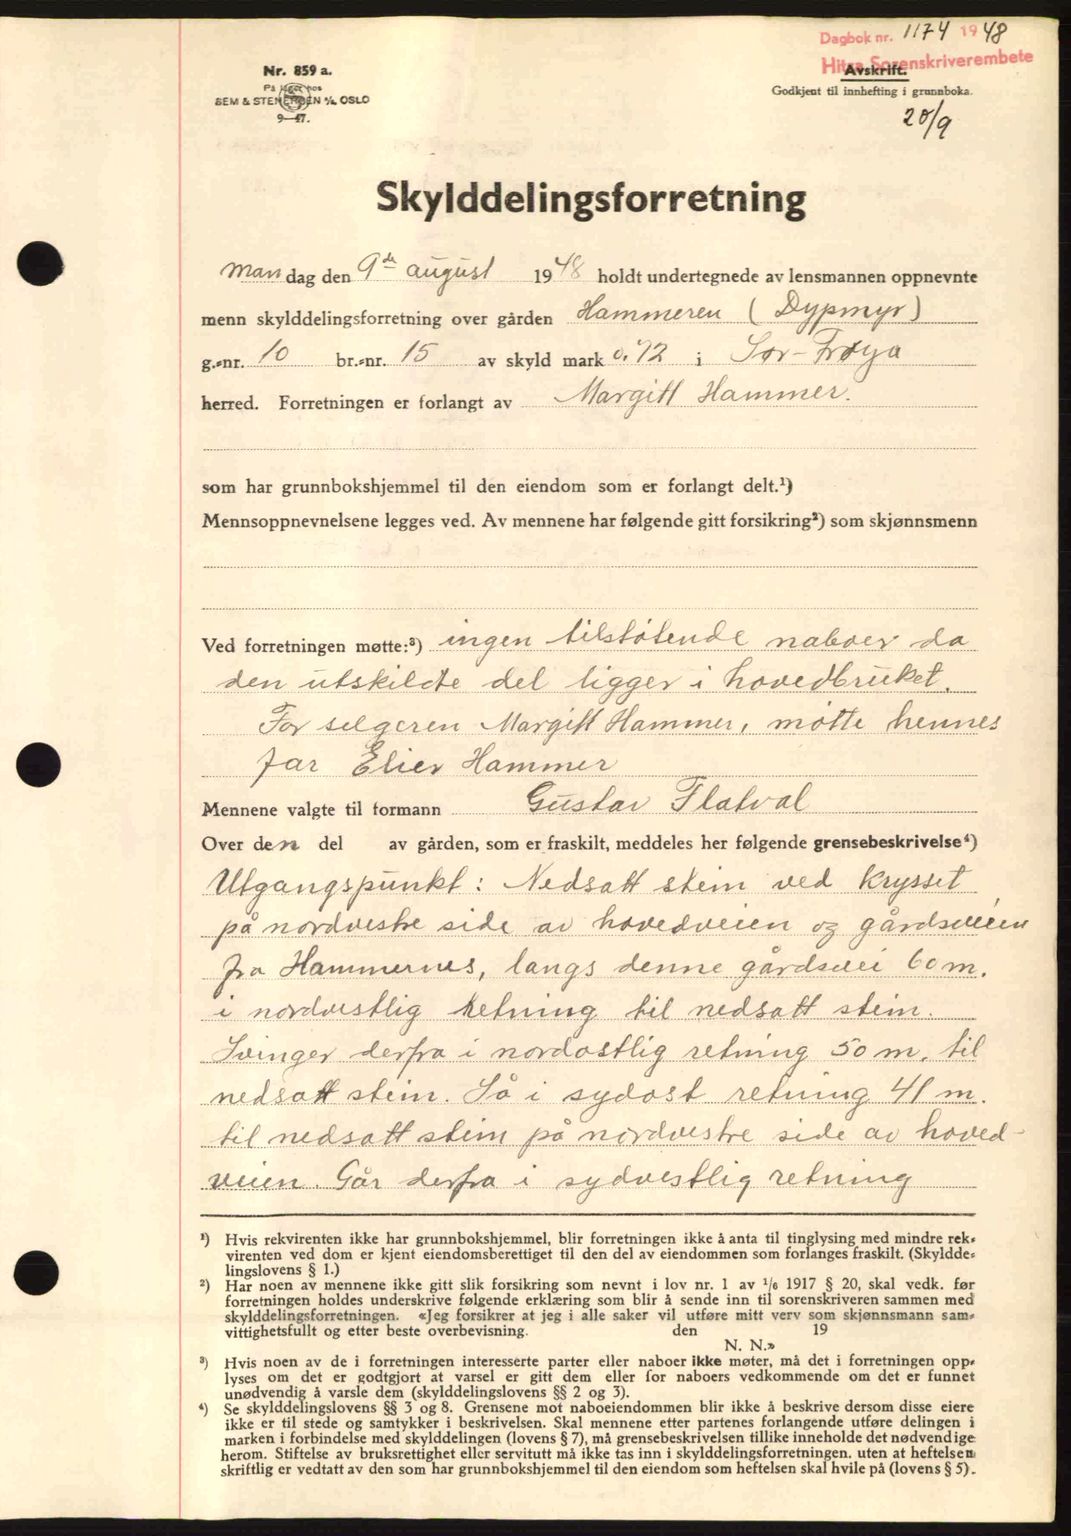 Dagbok nr. 1174 1948
Hitra Sorenskriverembete
Nr. 859 a.
På lager hos
SEM & STENERSEN A/S, OSLO
9-47.
Avskrift.
Godkjent til innhefting i grunnboka.
20/9
Skylddelingsforretning
Mandag den 9de august 1948 holdt undertegnede av lensmannen oppnevnte
menn skylddelingsforretning over gården Hammeren (Dypmyr)
g.-nr. 10 br.-nr. 15 av skyld mark 0.72 i Sør-Frøya
herred. Forretningen er forlangt av Margitt Hammer.
som har grunnbokshjemmel til den eiendom som er forlangt delt.¹)
Mennsoppnevnelsene legges ved. Av mennene har følgende gitt forsikring²) som skjønnsmenn
Ved forretningen møtte:³) ingen tilstøtende naboer da
den utskildte del ligger i hovedbruket.
For selgeren Margitt Hammer, møtte hennes
far Elier Hammer
Mennene valgte til formann Gustav Flatval
Over den del av gården, som er fraskilt, meddeles her følgende grensebeskrivelse⁴)
Utgangspunkt: Nedsatt stein ved krysset
på nordvestre side av hovedveien og gårdsveien
fra Hammernes, langs denne gårdsvei 60 m.
i nordvestlig retning til nedsatt stein.
Svinger derfra i nordostlig retning 50 m. til
nedsatt stein. Så i sydost retning 41 m.
til nedsatt stein på nordvestre side av hoved-
veien. Går derfra i sydvestlig retning
¹) Hvis rekvirenten ikke har grunnbokshjemmel, blir forretningen ikke å anta til tinglysing med mindre rek-
virenten ved dom er kjent eiendomsberettiget til den del av eiendommen som forlanges fraskilt. (Skyldde-
lingslovens § 1.)
²) Har noen av mennene ikke gitt slik forsikring som nevnt i lov nr. 1 av 1/6 1917 § 20, skal vedk. før
forretningen holdes underskrive følgende erklæring som blir å sende inn til sorenskriveren sammen med
skylddelingsforretningen. «Jeg forsikrer at jeg i alle saker vil utføre mitt verv som skjønnsmann sam-
vittighetsfullt og etter beste overbevisning. den 19
N. N.»
³) Hvis noen av de i forretningen interesserte parter eller naboer ikke møter, må det i forretningen opp-
lyses om det er godtgjort at varsel er gitt dem eller for naboers vedkommende om det er funnet
unødvendig å varsle dem (skylddelingslovens §§ 2 og 3).
⁴) Se skylddelingslovens §§ 3 og 8. Grensene mot naboeiendommen blir ikke å beskrive dersom disse eiere
ikke er til stede og samtykker i beskrivelsen. Skal mennene etter partenes forlangende utføre delingen i
marken i forbindelse med skylddelingen (lovens § 7), må grensebeskrivelsen tillike inneholde det nødvendige
herom. Stiftelse av bruksrettighet eller servitutt må ikke tas inn i skylddelingsforretningen, uten at heftelsen
skriftlig er vedtatt av den som har grunnbokshjemmel til den eiendom som heftelsen skal hvile på (lovens § 5).